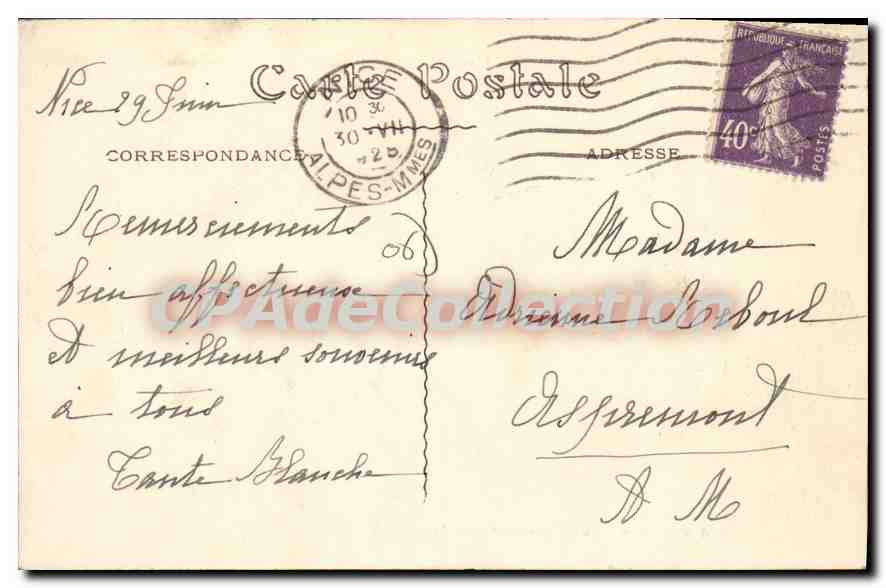 Carte Postale
NICE
10 30
30-VII
ALPES-MMES
REPUBLIQUE FRANÇAISE
40c
POSTES
Nice 29 Juin
CORRESPONDANCE
ADRESSE
Remerciements
bien affectueux
et meilleurs souvenirs
à tous
Tante Blanche
06
Madame
Adrienne Reboul
Aspremont
A M
CPAdeCollection